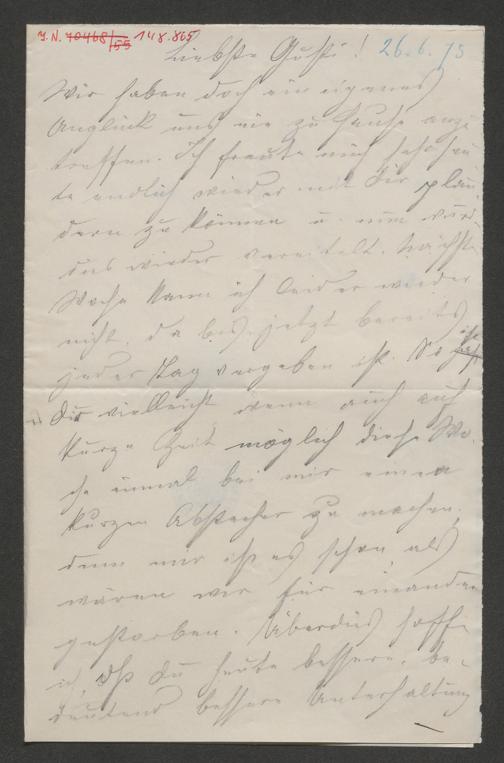 J. N. 70468/55 148.865
Liebste Gusti! 26.6.75
Wir haben doch ein eigenes
Unglück uns nie zu Hause anzu
treffen. Ich freute mich sehr heu
te endlich wieder mit Dir plau
dern zu können u. nun wird
uns wieder vereitelt. Nächste
Woche kann ich leider wieder
nicht, da bis jetzt bereits
jeder Tag vergeben ist. So ist
Dir vielleicht wenn auch auf
kurze Zeit möglich diese Wo-
che einmal bei mir einen
kurzen Abstecher zu machen,
denn mir ist es schon als
wären wir für einander
gestorben. Überdies hoffe
ich, dß Du heute bessere, be-
deutend bessere Unterhaltung